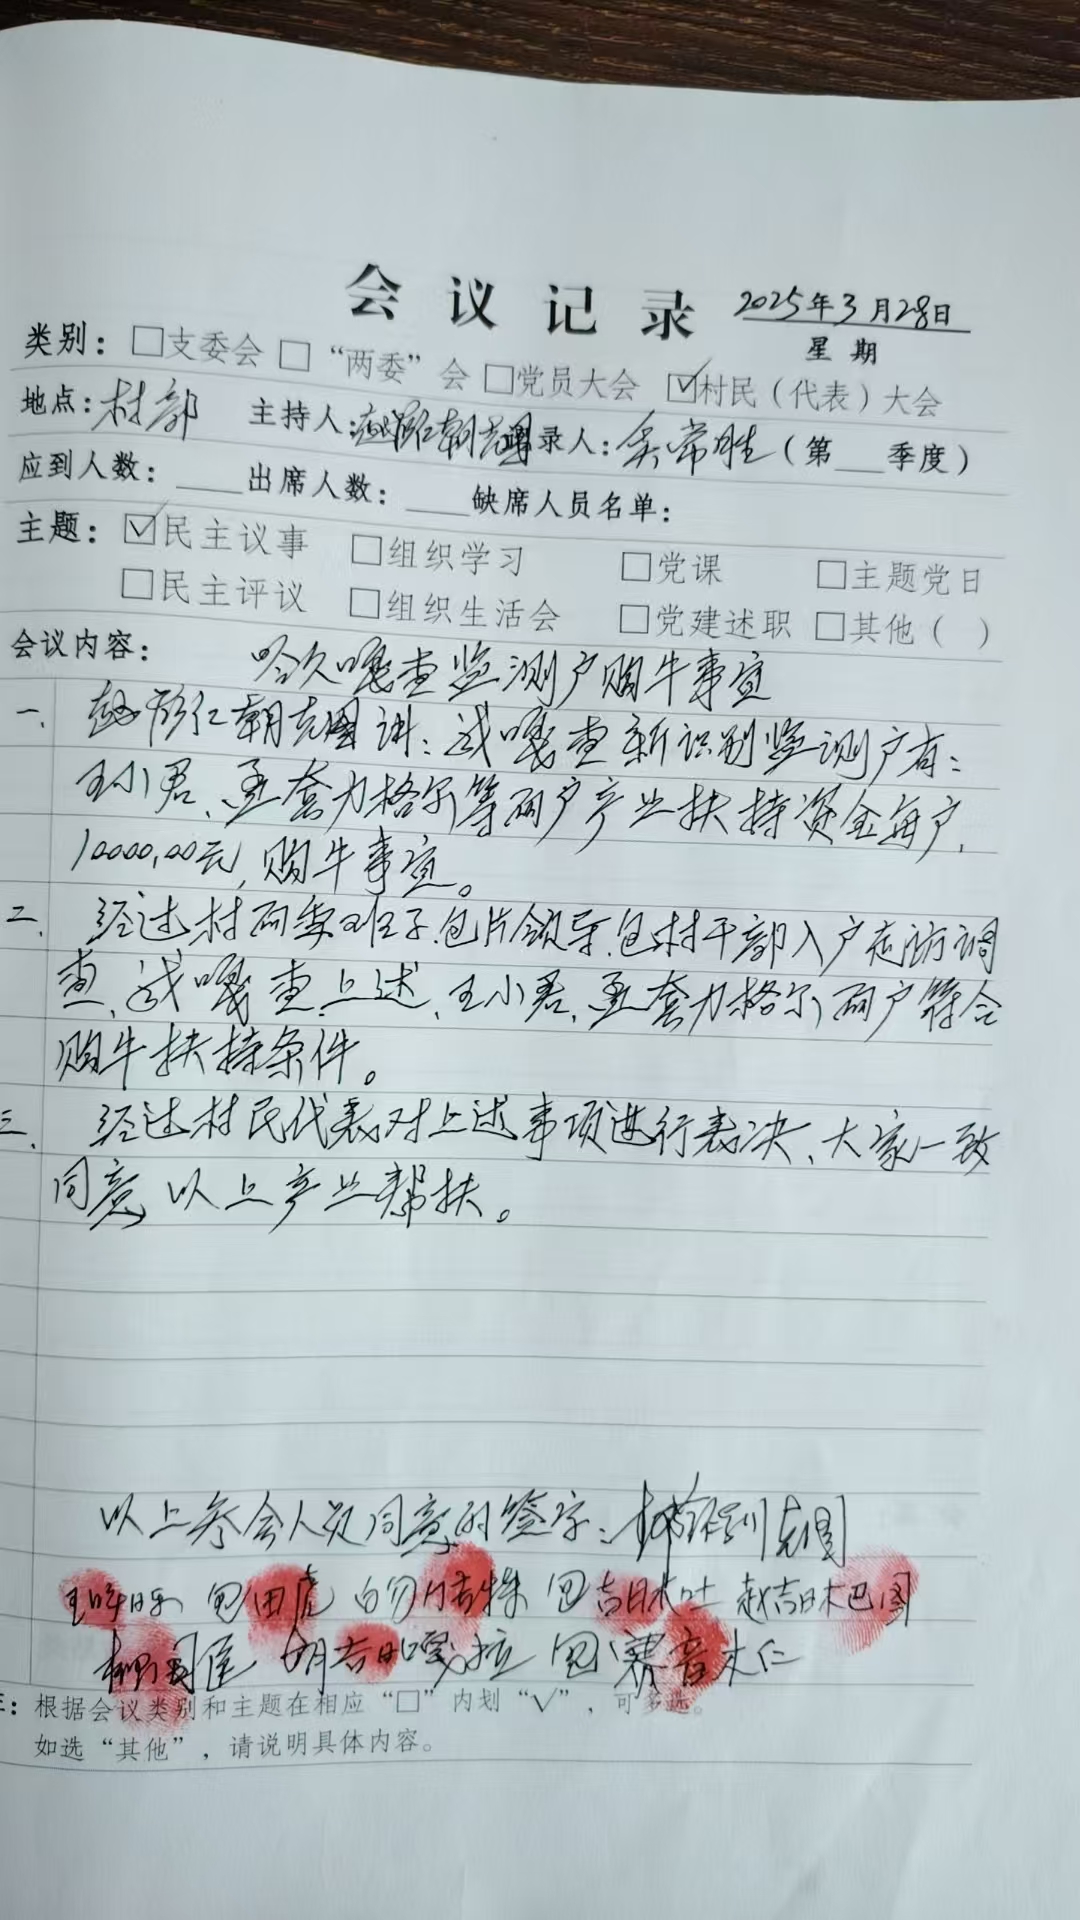 会议记录 2025年3月28日
星期
类别：□支委会 □“两委”会 □党员大会 ☑村民（代表）大会
地点：村部 主持人： 朝克图 记录人：吴常胜（第___季度）
应到人数：____出席人数：____缺席人员名单：
主题：☑民主议事 □组织学习 □党课 □主题党日
□民主评议 □组织生活会 □党建述职 □其他（ ）
会议内容： 哈久嘎查监测户购牛事宜
一、 仁朝克图讲：我嘎查新识别监测户有：
王小君、孟套力格尔等两户产业扶持资金每户，
10000.00元，购牛事宜。
二、 经过村两委班子、包片领导、包村干部入户走访调
查，我嘎查上述，王小君、孟套力格尔两户符合
购牛扶持条件。
三、 经过村民代表对上述事项进行表决、大家一致
同意以上产业帮扶。
以上参会人员同意的签字： 克图
包田虎 包吉日木吐 赵吉日木巴图
胡吉日嘎拉 包赛音木仁
注：根据会议类别和主题在相应“□”内划“√”，可多选。
如选“其他”，请说明具体内容。